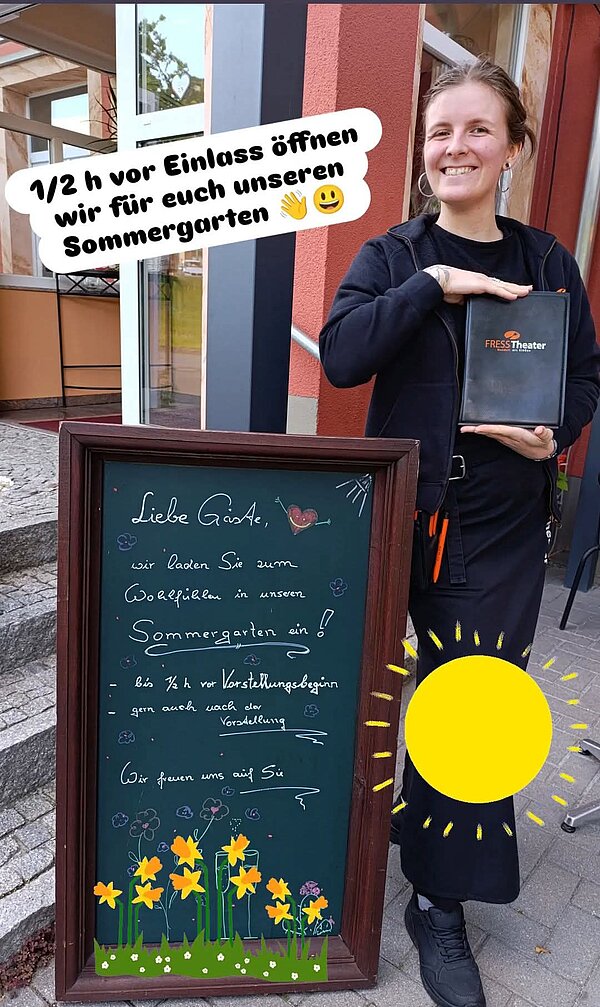 1/2 h vor Einlass öffnen
wir für euch unseren
Sommergarten 👋😃
FRESSTheater
Liebe Gäste,
wir laden Sie zum
Wohlfühlen in unseren
Sommergarten ein!
- bis ½ h vor Vorstellungsbeginn
- gern auch nach der
Vorstellung
Wir freuen uns auf Sie